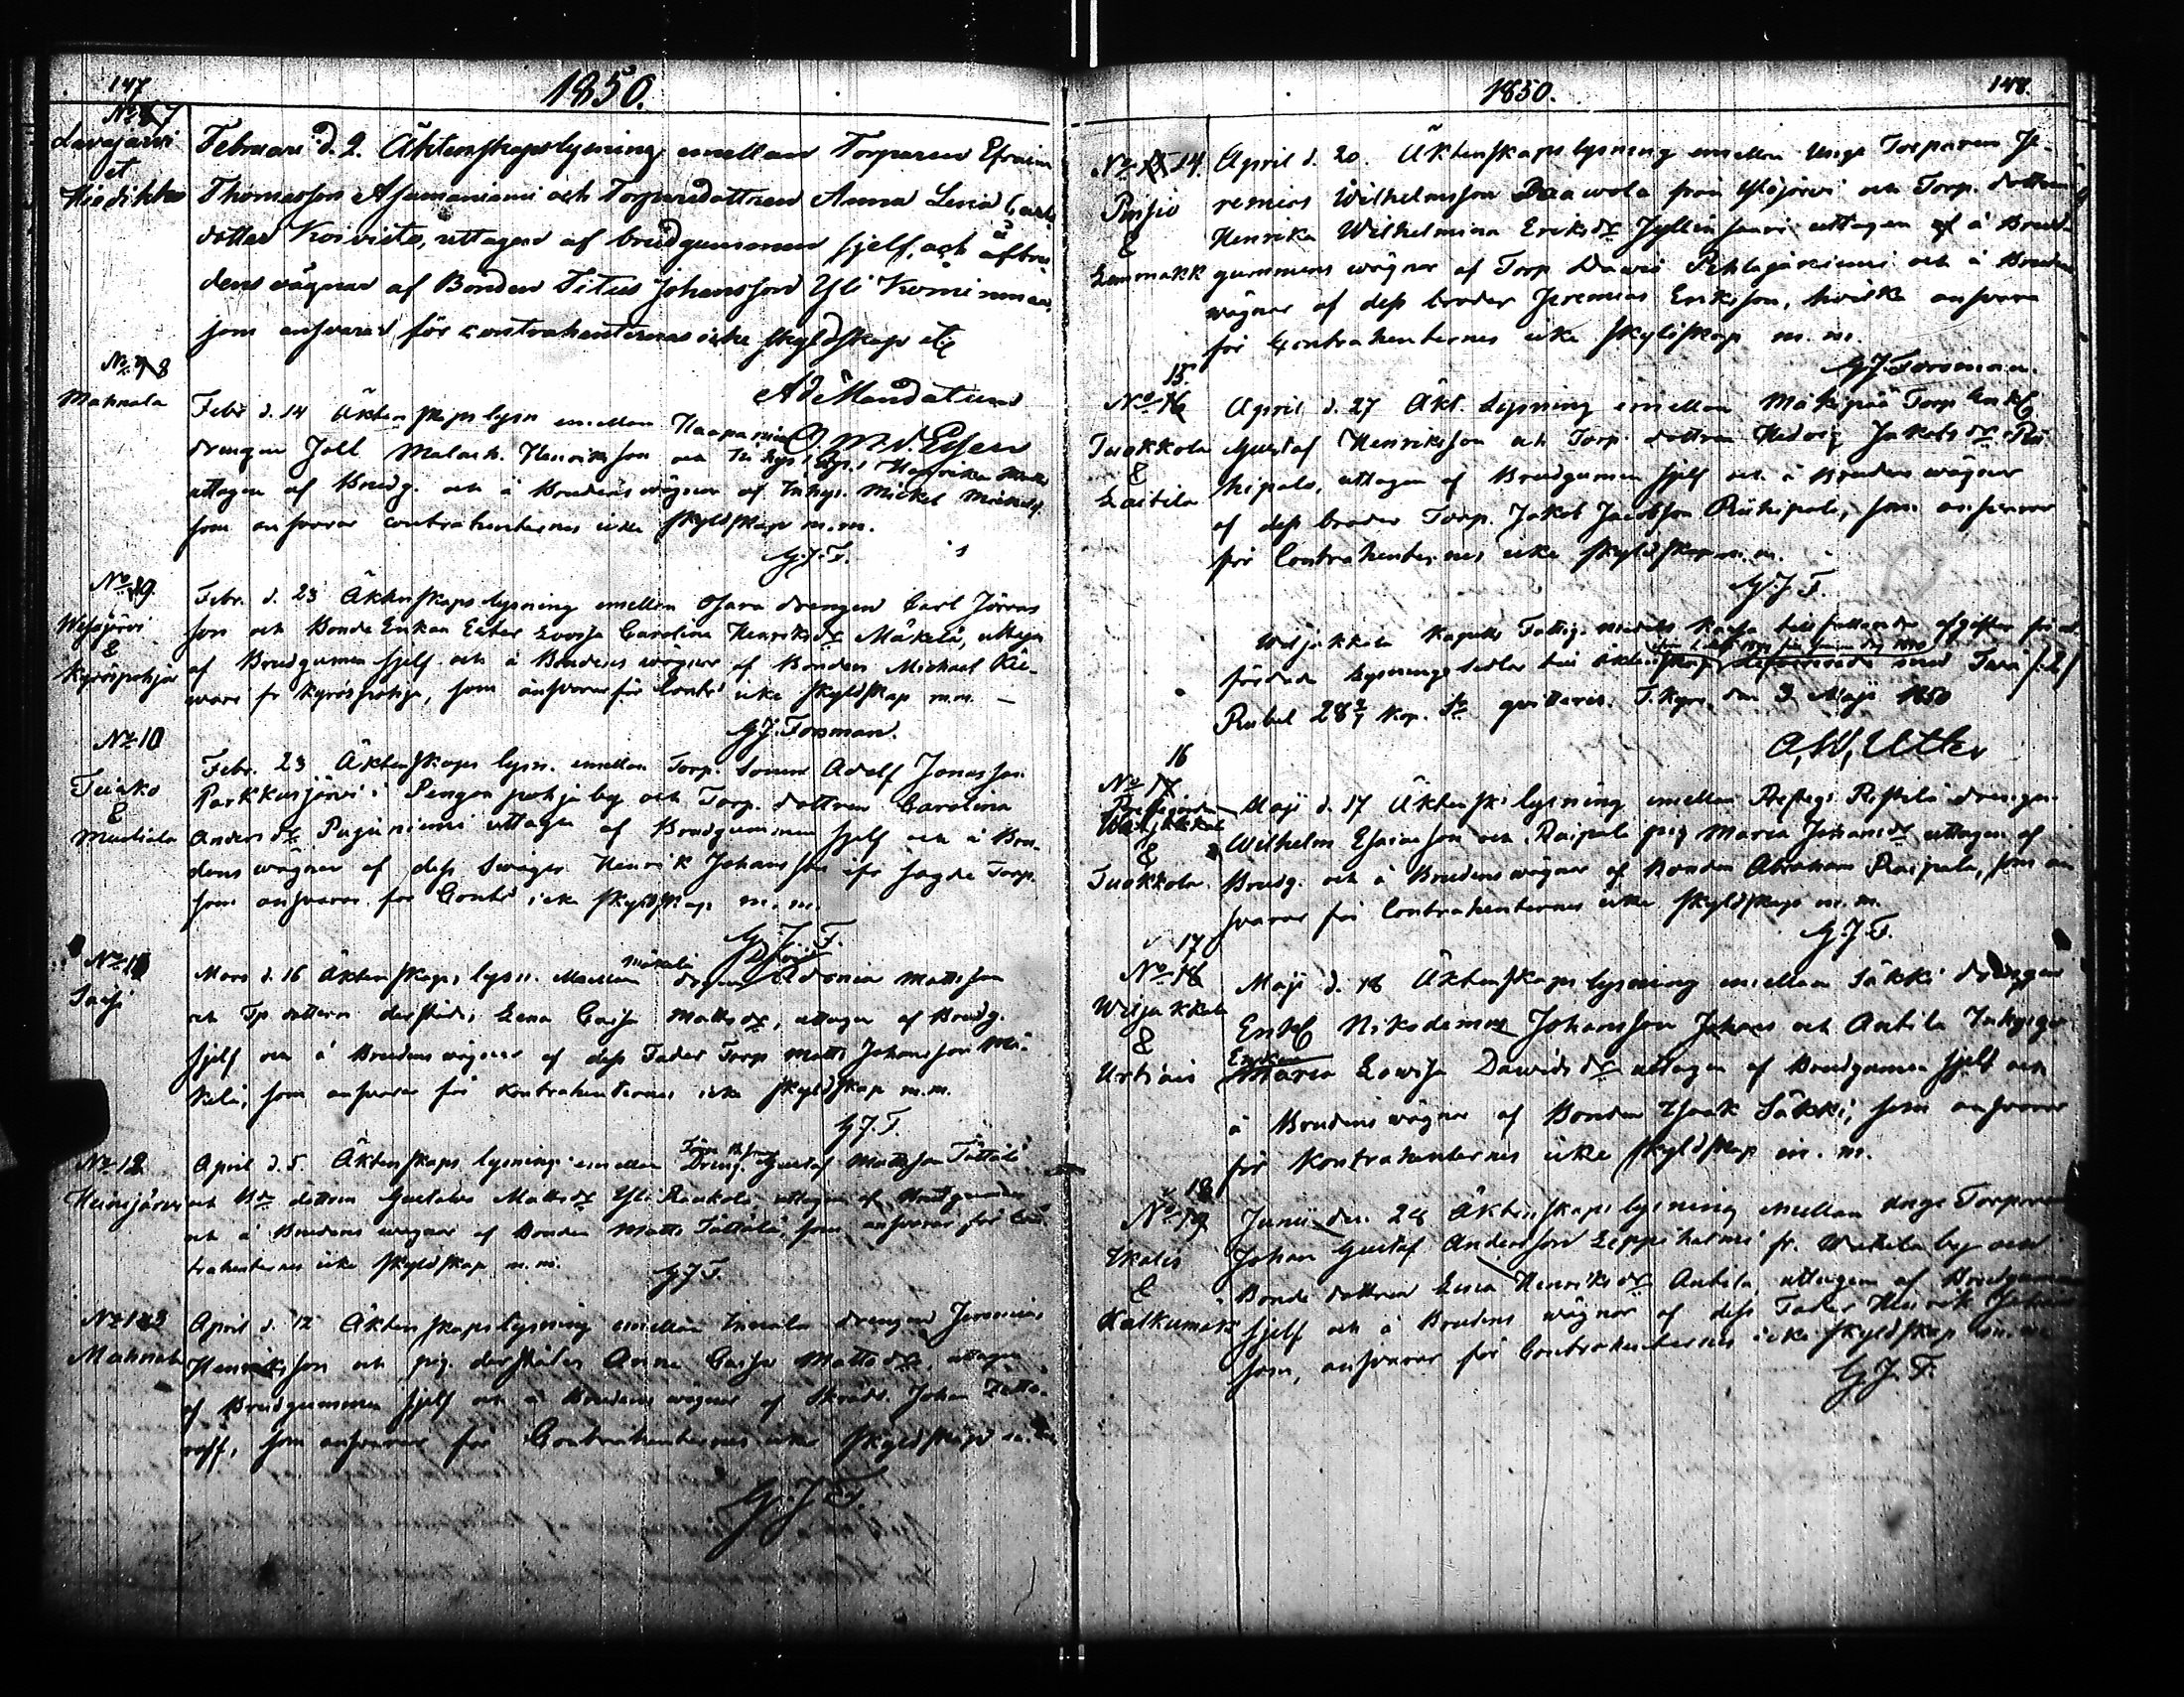 147
1850.
No 7
Lavajärvi
et
Hiediktko
Februari d. 2. Äktenskapslysning emellan Torparen Efraim
Thomasson Asumaniemi och Torparedottren Anna Lovisa Carls
dotter Koivisto, uttagen af brudgummen sjelf, och å bru
dens vägnar af Bonden Titus Johansson Yli Kominmaa,
som ansvarar för contrahenternas icke skyldskap etc
Ad Mandatum
O. M. v. Essen
No 8
Mahnala
Febr. d. 14 Äktenskaps lysn emellan Haapaniemi
drengen Joll Malach. Henriksson och Inhys Henrika Matts
uttagen af Brudg. och å Brudens wägnar af Inhys. Mickel Michels.
som ansvarar contrahenternes icke skyldskap m.m.
G.J.F.
No 9.
Wesajärvi
&
Kyröspohja
Febr. d. 23 Äktenskaps lysning emellan Osara drengen Carl Jöran
son och Bonde Enkan Ester Lovisa Carolina Henriksdr Mäkelä, uttagen
af Brudgumen sjelf och å Brudens wägnar af Bonden Michael Kie-
wari fr Kyröspohja, som ansvarar för Contr icke skyldskap m.m. —
G.J. Forsman.
No 10
Tuiako
&
Murtiala
Febr. 23 Äktenskaps lysn. emellan Torp. sonen Adolf Jonasson
Parkkusjärvi i Pengonpohja by och Torp. dottren Carolina
Andersdr Pajuniemi uttagen af Brudgummen sjelf och å Bru-
dens wägnar af dess Swåger Henrik Johansson ifr sagde Torp.
som ansvarar för Contr icke skyldskap m.m.
G.J.F.
No 11
Sasi
Mars d. 16 Äktenskaps lysn. Mellan Mäkelä drengen Adonia Mattsson
och Tp dottren derstädes Lena Caisa Mattsdr, uttagen af Brudg.
sjelf och å Brudens wägnar af dess Fader Torp Matts Johansson Mä-
kelä, som ansvarar för kontrahenternes icke skyldskap m.m.
G.J.F.
No 12
Heinijärvi
April d. 5. Äktenskaps lysning emellan Dreng. Gustaf Mattsson Tättälä
och Bde dottren Gustava Mattsdr Yli Raukola uttagen af Brudgummen
och å Brudens wägnar af Bonden Matts Tättälä, som ansvarar för Con
trahenternes icke skyldskap m.m.
G.J.F.
No 13
Mahnala
April d. 12 Äktenskapslysning emellan drengen Jeremias
Henriksson och pig. derstädes Anna Caisa Mattsdr, uttagen
af Brudgummen sjelf och å Brudens wägnar af Skrädd. Johan
som ansvarar för Contrahenternes icke skyldskap
G.J.F.
1850.
148.
No 14.
Pinsio
&
Lemmakk
April d. 20. Äktenskaps lysning emellan Unge Torparen Je-
remias Wilhelmsson Paawola från Ylöjärvi och Torp. dottren
Henrika Wilhelmina Eriksdr Jyllinsaari uttagen å Brud
gummens wägnar af Torp David Pehlajaniemi och å Brudens
wägnar af dess broder Jeremias Eriksson, hvilka ansvara
för Contrahenternes icke skyldskap m.m.
G.J. Forsman.
15.
No 16
Tuokkola
&
Laitila
April d. 27 Äkt. Lysning emellan Mäkipää Torp Enkl
Gustaf Henriksson och Torp. dottren Hedvig Jakobsdr Rii
hipalo, uttagen af Brudgumen sjelf och å Brudens wägnar
af dess broder Torp. Jakob Jacobsson Riihipalo, som ansvarar
för Contrahenternes icke skyldskap m.m.
G.J.F.
Wiljakkala Kapells Fattig medels kassa tillfallande afgifter för ut
färdade lysnings sedlar till äktenskap med Två
Rubel 28 4/7 kop. Sr qvitteres. T.kyro den 3 Maji 1850
A.W. Utter
16
No 17
Wiljakkala
&
Tuokkola
Maji d. 17 Äktensk. lysning emellan Prestegs Ristilä drengen
Wilhelm Esaiasson och Raipala pig Maria Johansdr uttagen af
Brudg. och å Brudens wägnar af Bonden Abraham Raipala, som an
svarar för Contrahenternes icke skyldskap m.m.
G.J.F.
17
No 18
Wiljakkala
&
Urtiais
Maji d. 18 Äktenskaps lysning emellan Säkki drengen
Enkl Nikodemus Johansson och Antila Inhyses
Enkan
Maria Lovisa Davidsdr uttagen af Brudgumen sjelf och
å Brudens wägnar af Bonden Isaak Säkki, som ansvarar
för Kontrahenternes icke skyldskap m.m.
18
No 19
Ikalis
&
Kalkunmäki
Junii den 28 Äktenskaps lysning emellan Unge Torparen
Johan Gustaf Andersson Leppihalmi fr. Wattula by och
Bonde dottren Lena Henriksdr Antila uttagen af Brudgumen
sjelf och å Brudens wägnar af dess Fader Henrik
som, ansvarar för Contrahenternes icke skyldskap m.m
G.J.F.